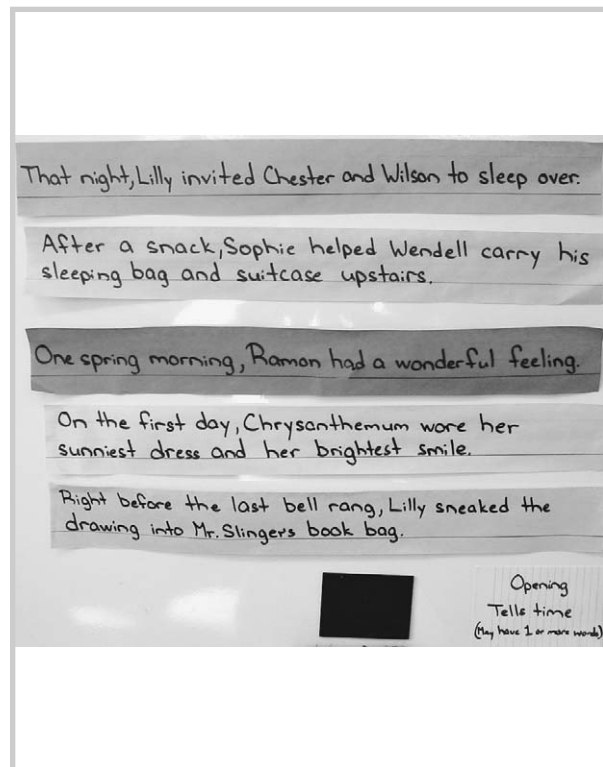 That night, Lilly invited Chester and Wilson to sleep over.
After a snack, Sophie helped Wendell carry his
sleeping bag and suitcase upstairs.
One spring morning, Ramon had a wonderful feeling.
On the first day, Chrysanthemum wore her
sunniest dress and her brightest smile.
Right before the last bell rang, Lilly sneaked the
drawing into Mr. Slinger's book bag.
Opening
Tells time
(May have 1 or more words)